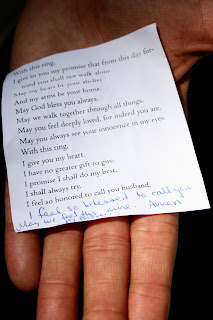 With this ring,
I give to you my promise that from this day for-
ward you shall not walk alone.
May my heart be your shelter
And my arms be your home.
May God bless you always.
May we walk together through all things.
May you feel deeply loved, for indeed you are.
May you always see your innocence in my eyes.
With this ring.
I give you my heart.
I have no greater gift to give.
I promise I shall do my best.
I shall always try.
I feel so honored to call you husband.
I feel so blessed to call you
mine. Amen